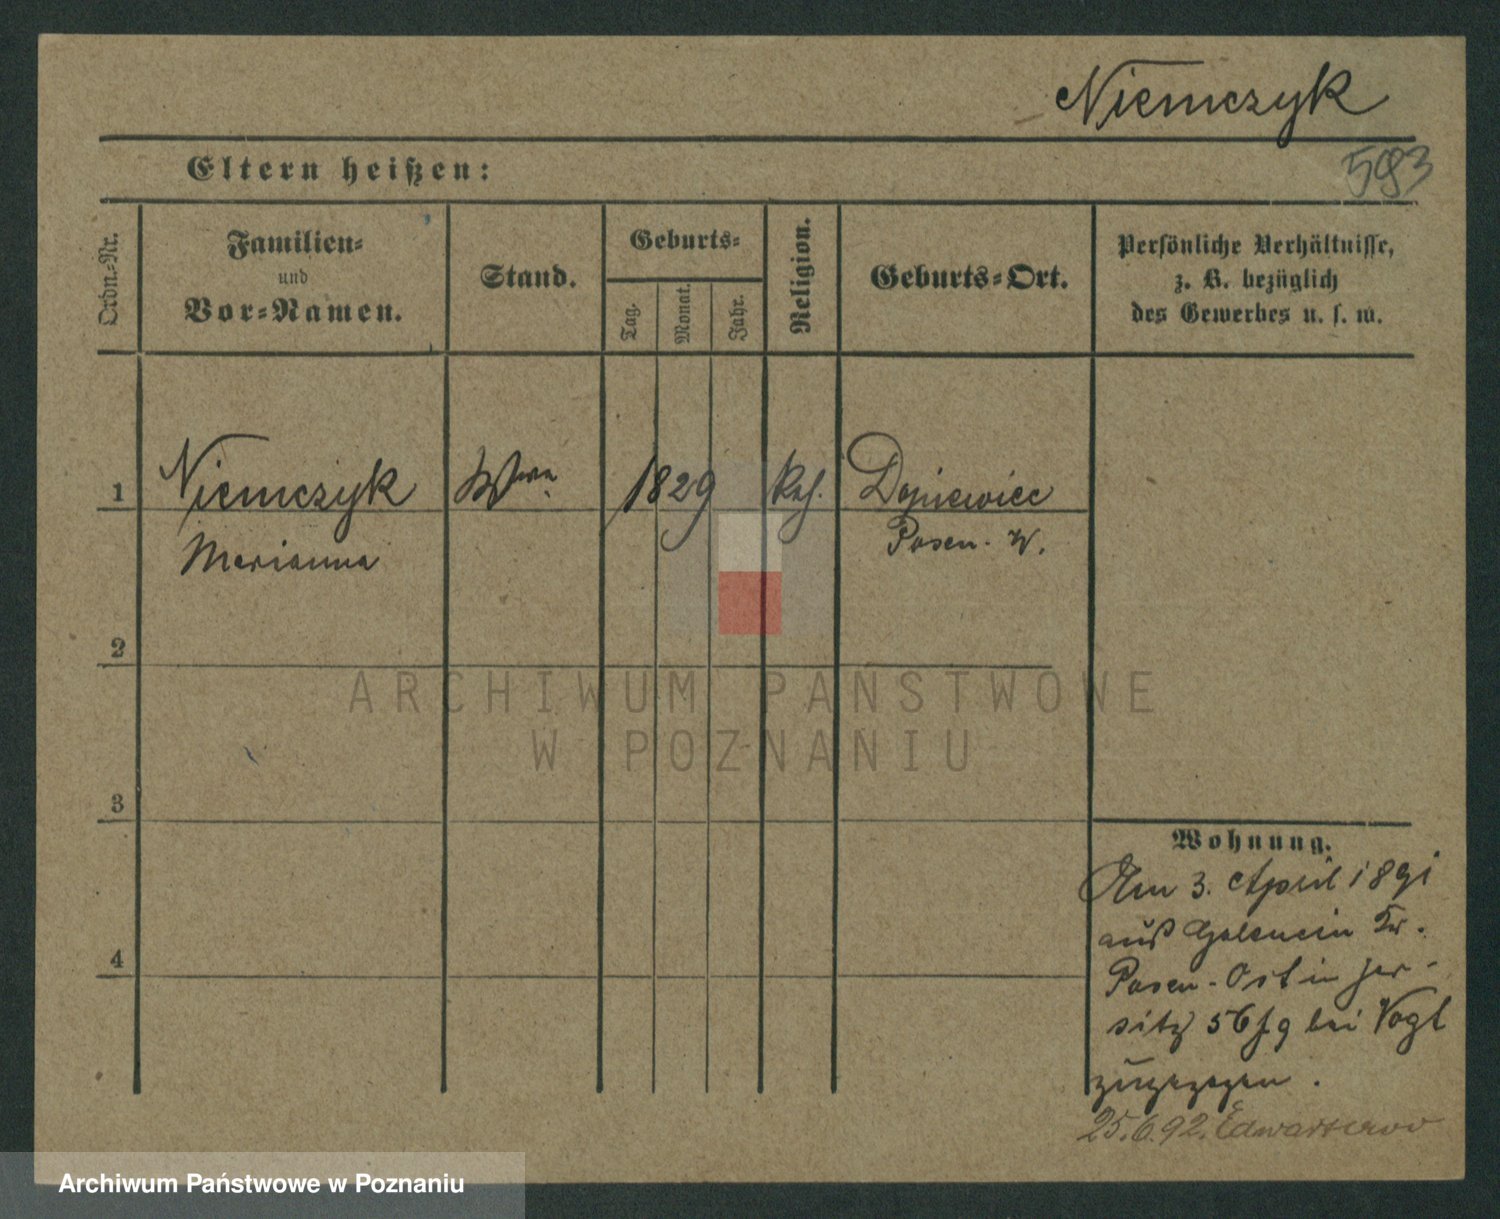 Niemczyk
593
Eltern heißen:
Ordn.-Nr.
Familien-
und
Vor-Namen.
Stand.
Geburts-
Tag.
Monat.
Jahr.
Religion.
Geburts-Ort.
Persönliche Verhältnisse,
z. B. bezüglich
des Gewerbes u. s. w.
1 Niemczyk Wwe. 1829 Kath.
Marianna Posen. W.
2
ARCHIWUM PAŃSTWOWE
W POZNANIU
3
4
Wohnung.
Am 3. April 1891
aus Kr.
Posen-Ost in Jer-
sitz bei Vogt
zugezogen.
25.6.92.
Archiwum Państwowe w Poznaniu